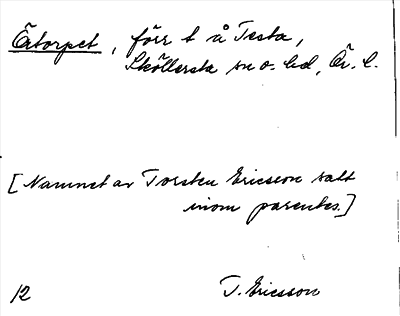 Ötorpet, förr t å Testa,
Sköllersta sn o. hd, Ör. l.
[Namnet av Torsten Ericson satt
inom parentes.]
12 T. Ericsson